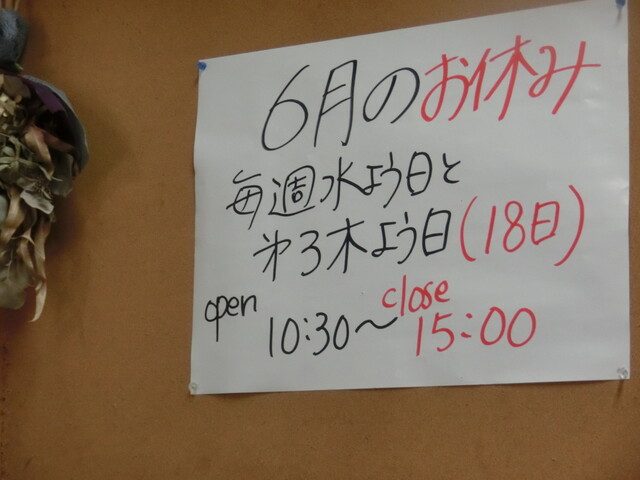 6月のお休み
毎週水よう日と
才3木よう日(18日)
open 10:30〜close 15:00